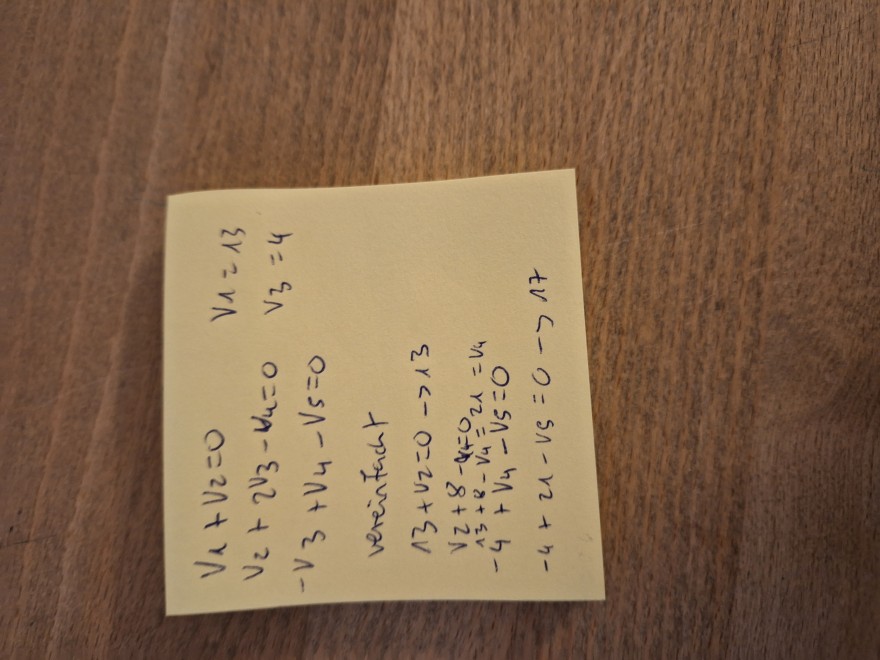 V1 + V2 = 0 V1 = 13
V2 + 2V3 - V4 = 0 V3 = 4
-V3 + V4 - V5 = 0
vereinfacht
13 + V2 = 0 -> 13
V2 + 8 - V4 = 0
13 + 8 - V4 = 21 = V4
-4 + V4 - V5 = 0
-4 + 21 - V5 = 0 -> 17